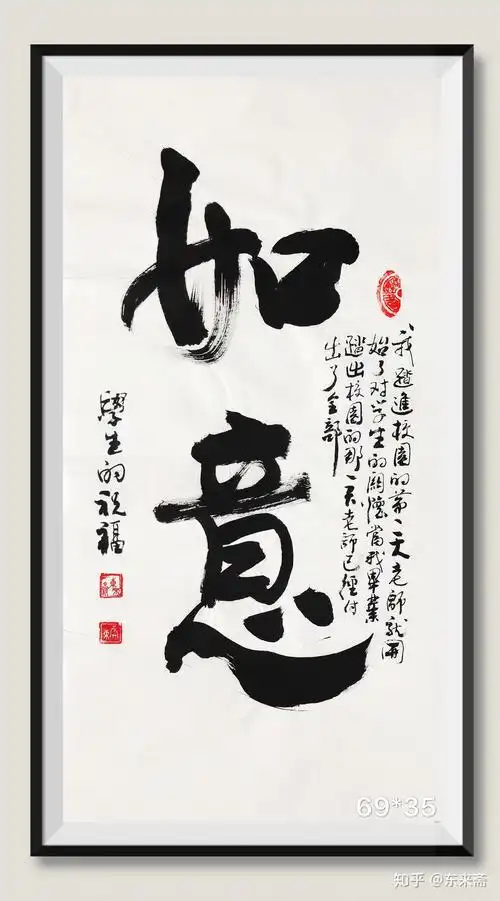 我踏進校園的第一天老師就開
始了对学生的關懷當我畢業
踏出校園的那一天老師已經付
出了全部
如意
學生的祝福
69*35
知乎 @东来斋